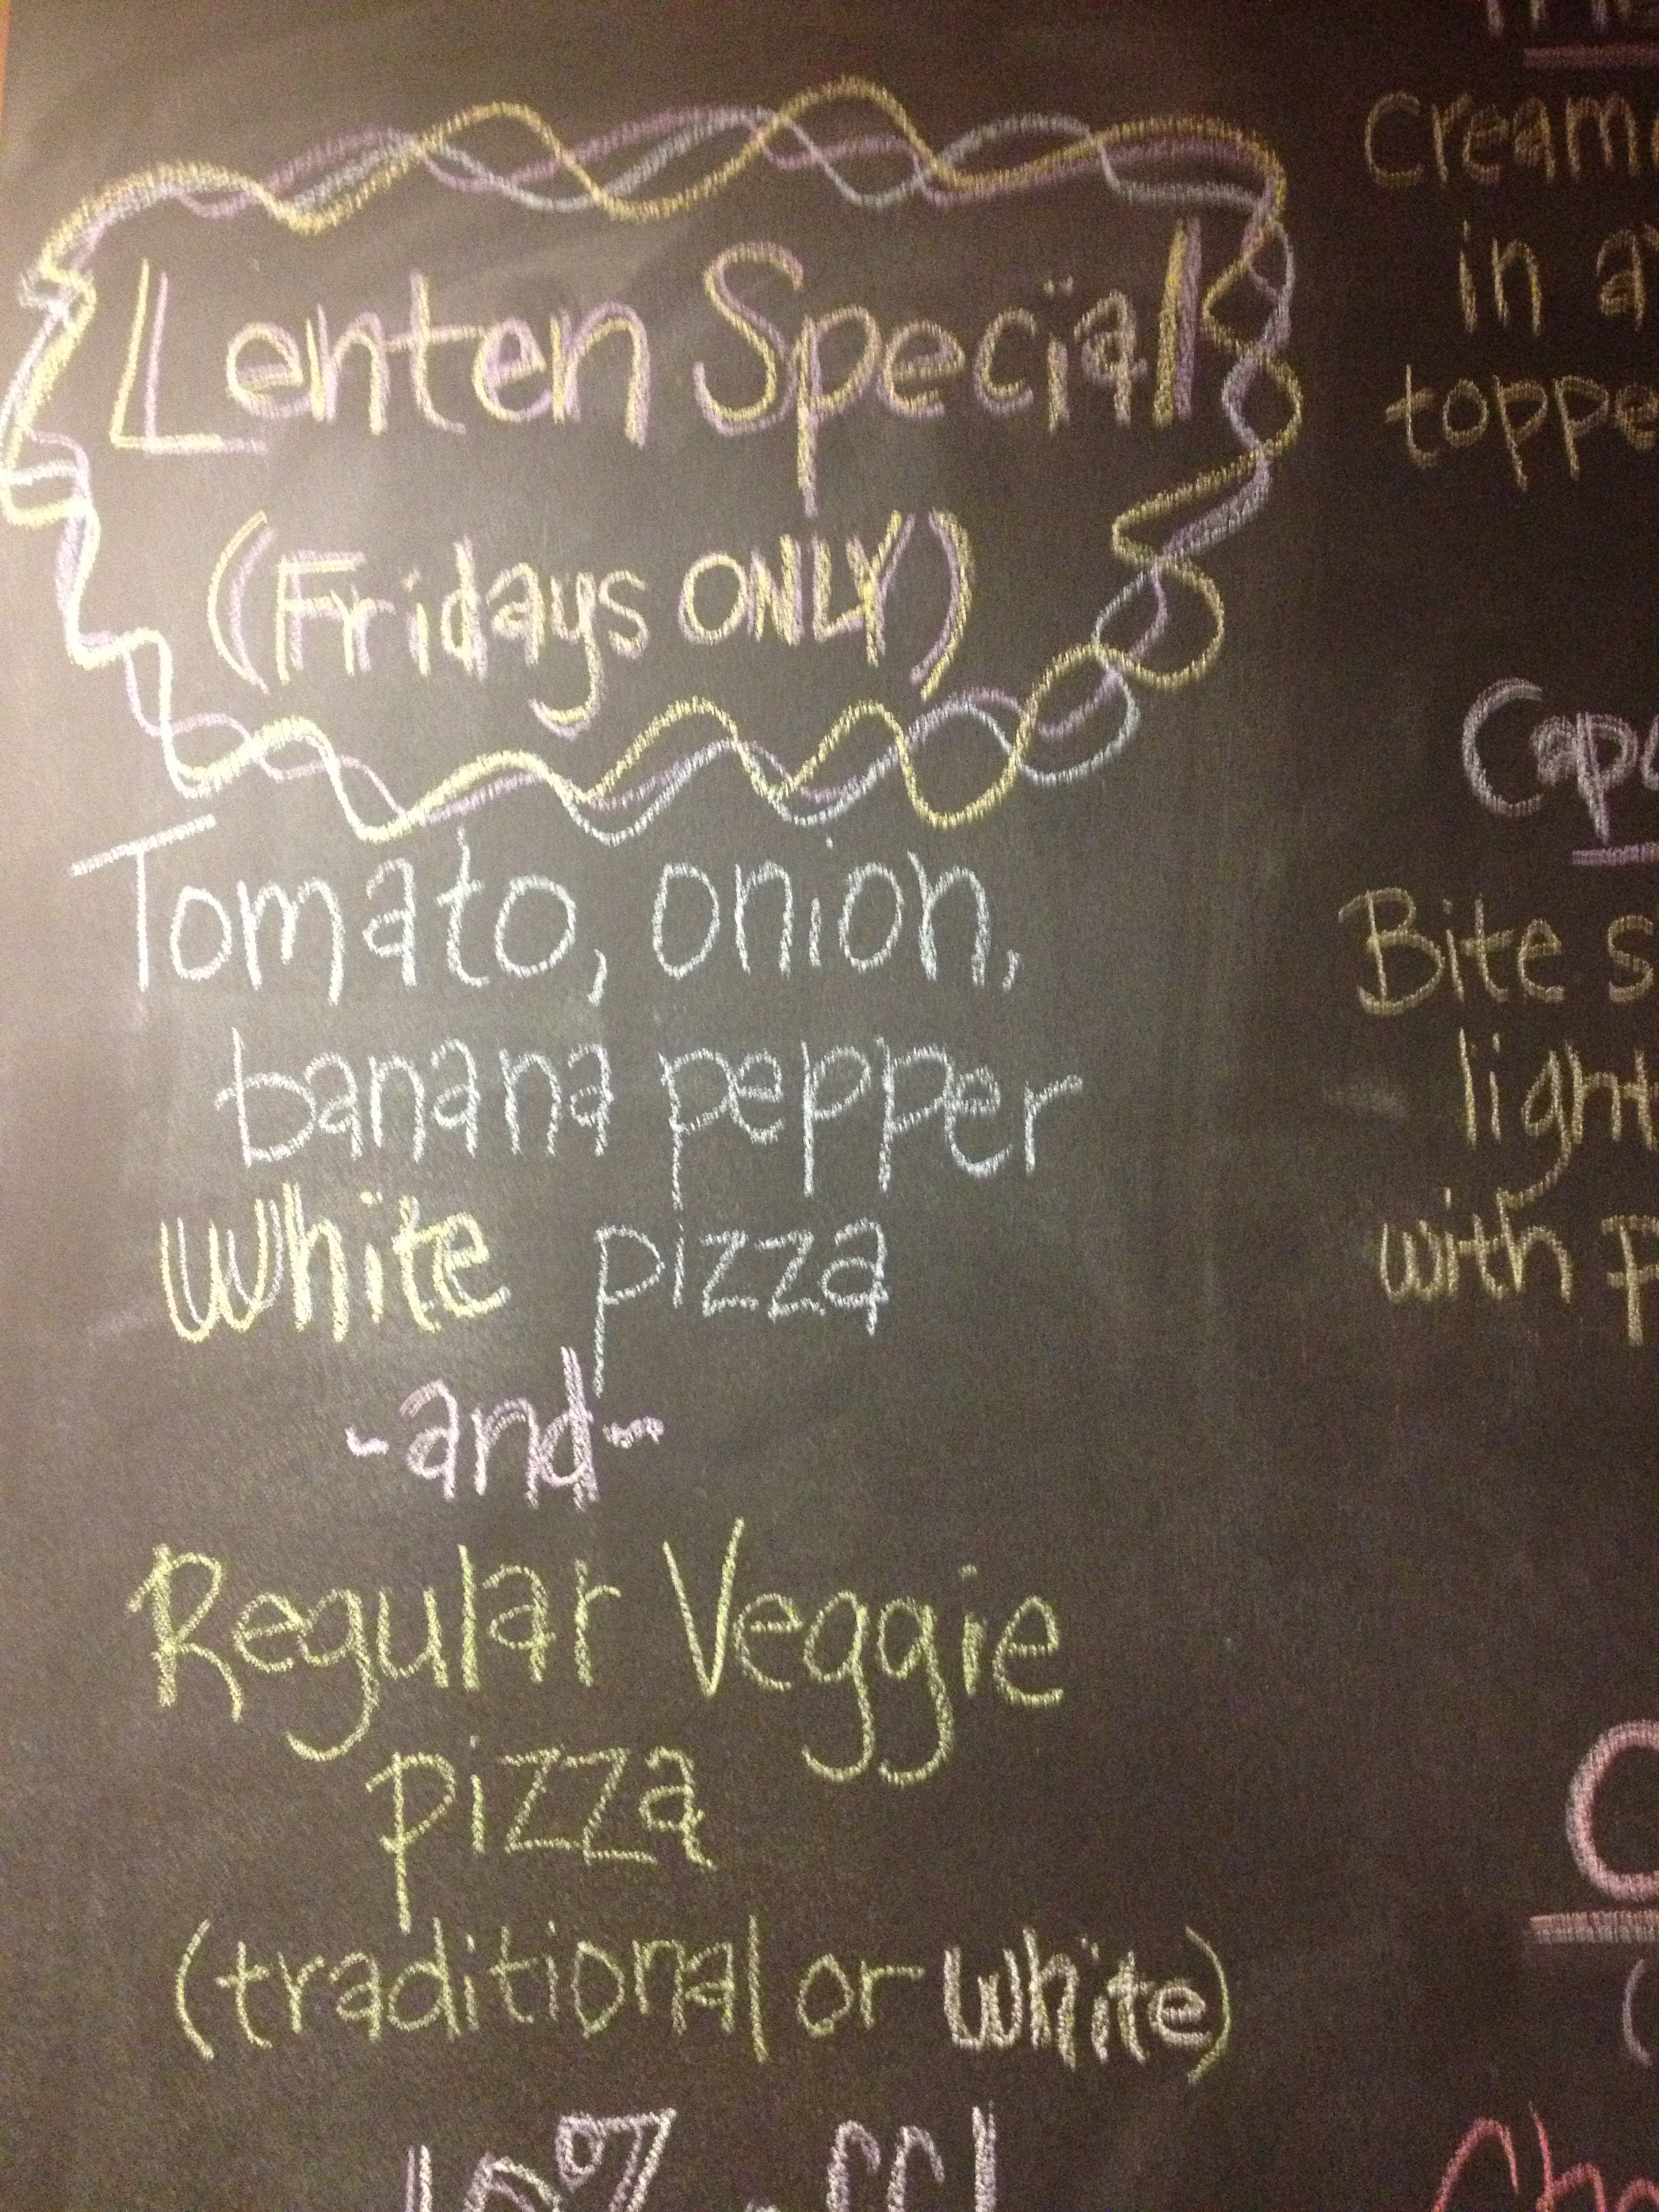 Lenten Special
(Fridays ONLY)
Tomato, onion,
banana pepper
white pizza
-and-
Regular Veggie
pizza
(traditional or white)
10% off!
in
Bite
light
with